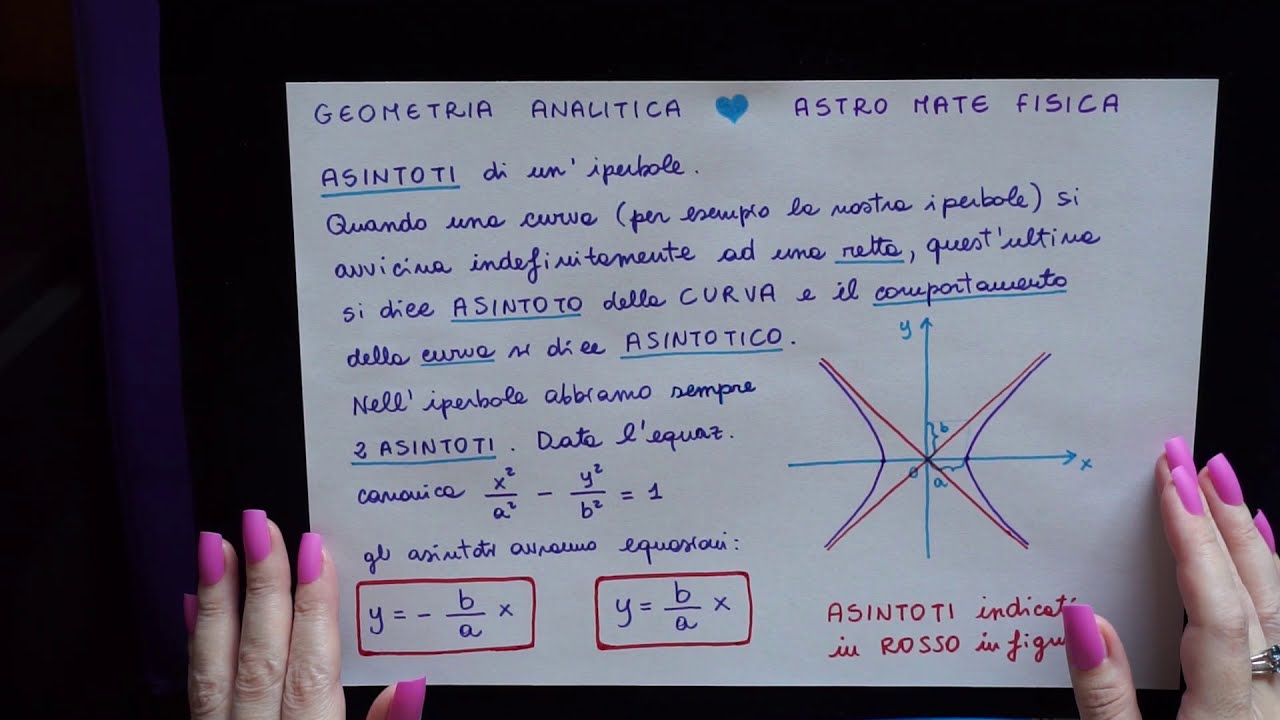 GEOMETRIA ANALITICA 💙 ASTRO MATE FISICA
ASINTOTI di un' iperbole.
Quando una curva (per esempio la nostra iperbole) si
avvicina indefinitamente ad una retta, quest'ultima
si dice ASINTOTO della CURVA e il comportamento
della curva si dice ASINTOTICO.
Nell' iperbole abbiamo sempre
2 ASINTOTI. Data l'equaz.
canonica x²/a² - y²/b² = 1
gli asintoti avranno equazioni:
y = - b/a x
y = b/a x
y
b
0
a
x
ASINTOTI indicati
in ROSSO in